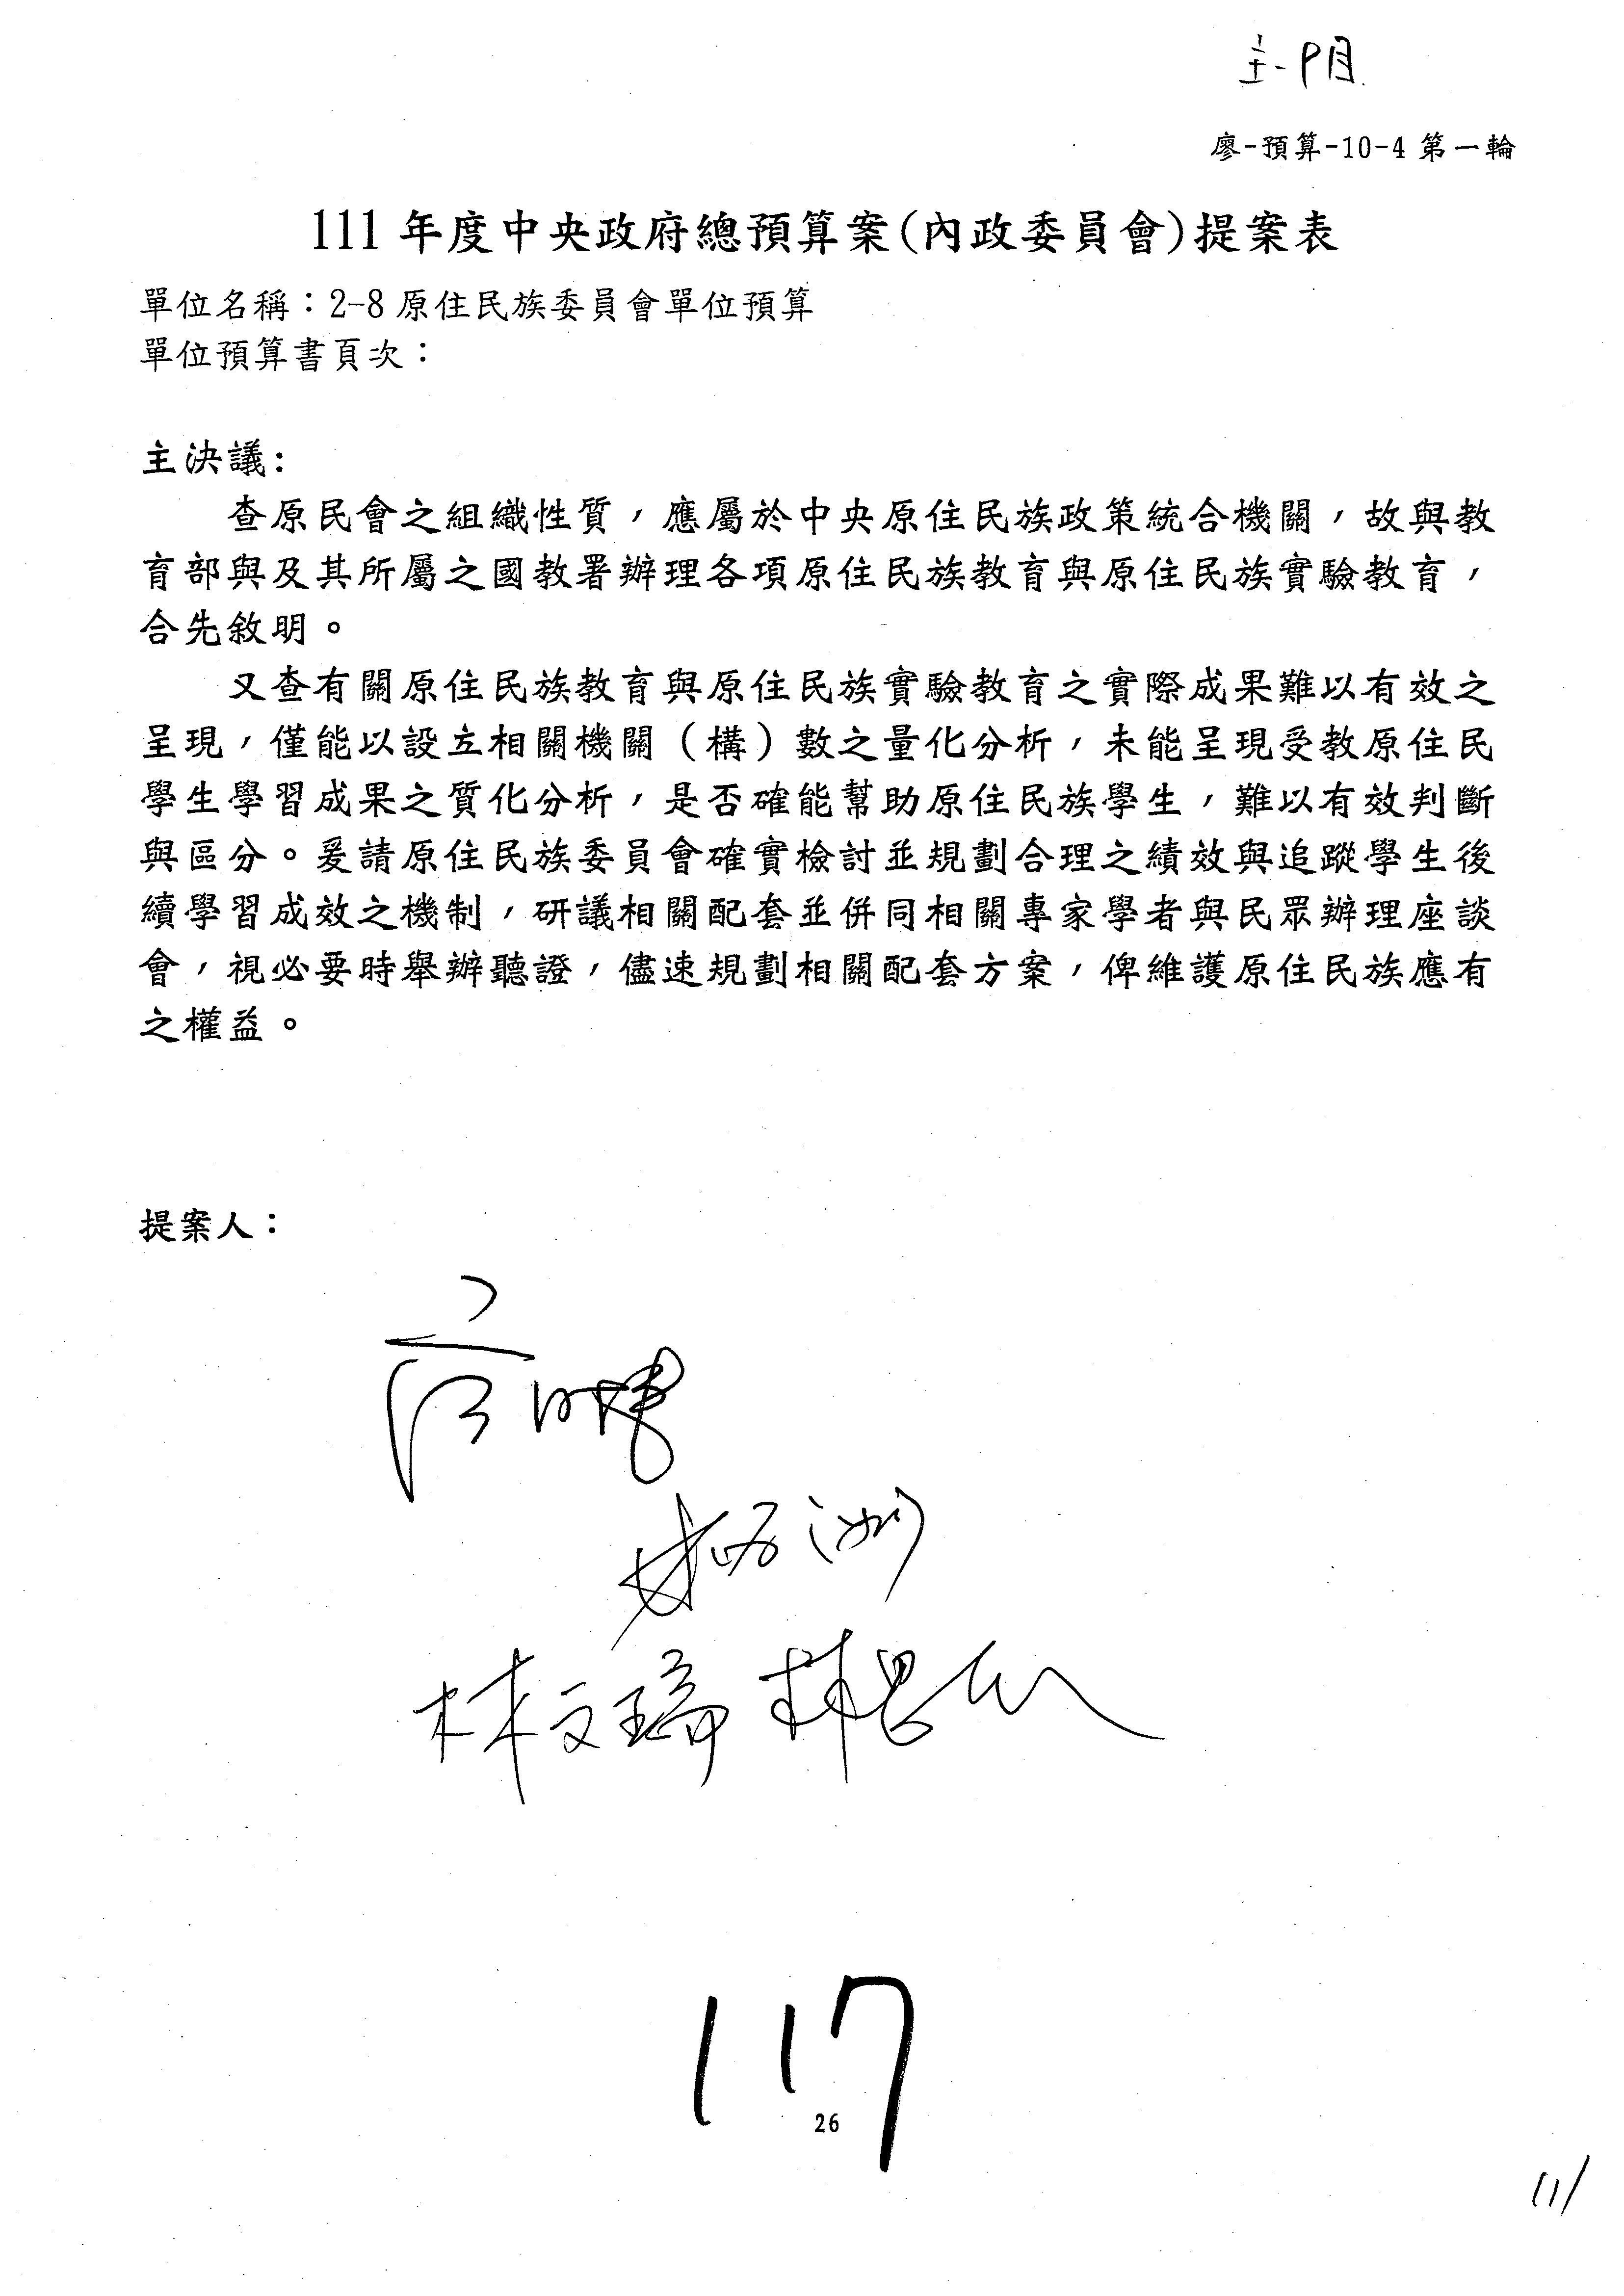 廖-預算-10-4 第一輪
111 年度中央政府總預算案(內政委員會)提案表
單位名稱：2-8 原住民族委員會單位預算
單位預算書頁次：
主決議:
查原民會之組織性質，應屬於中央原住民族政策統合機關，故與教
育部與及其所屬之國教署辦理各項原住民族教育與原住民族實驗教育，
合先敘明。
又查有關原住民族教育與原住民族實驗教育之實際成果難以有效之
呈現，僅能以設立相關機關（構）數之量化分析，未能呈現受教原住民
學生學習成果之質化分析，是否確能幫助原住民族學生，難以有效判斷
與區分。爰請原住民族委員會確實檢討並規劃合理之績效與追蹤學生後
續學習成效之機制，研議相關配套並併同相關專家學者與民眾辦理座談
會，視必要時舉辦聽證，儘速規劃相關配套方案，俾維護原住民族應有
之權益。
提案人：
林文瑞 林思銘
117
26